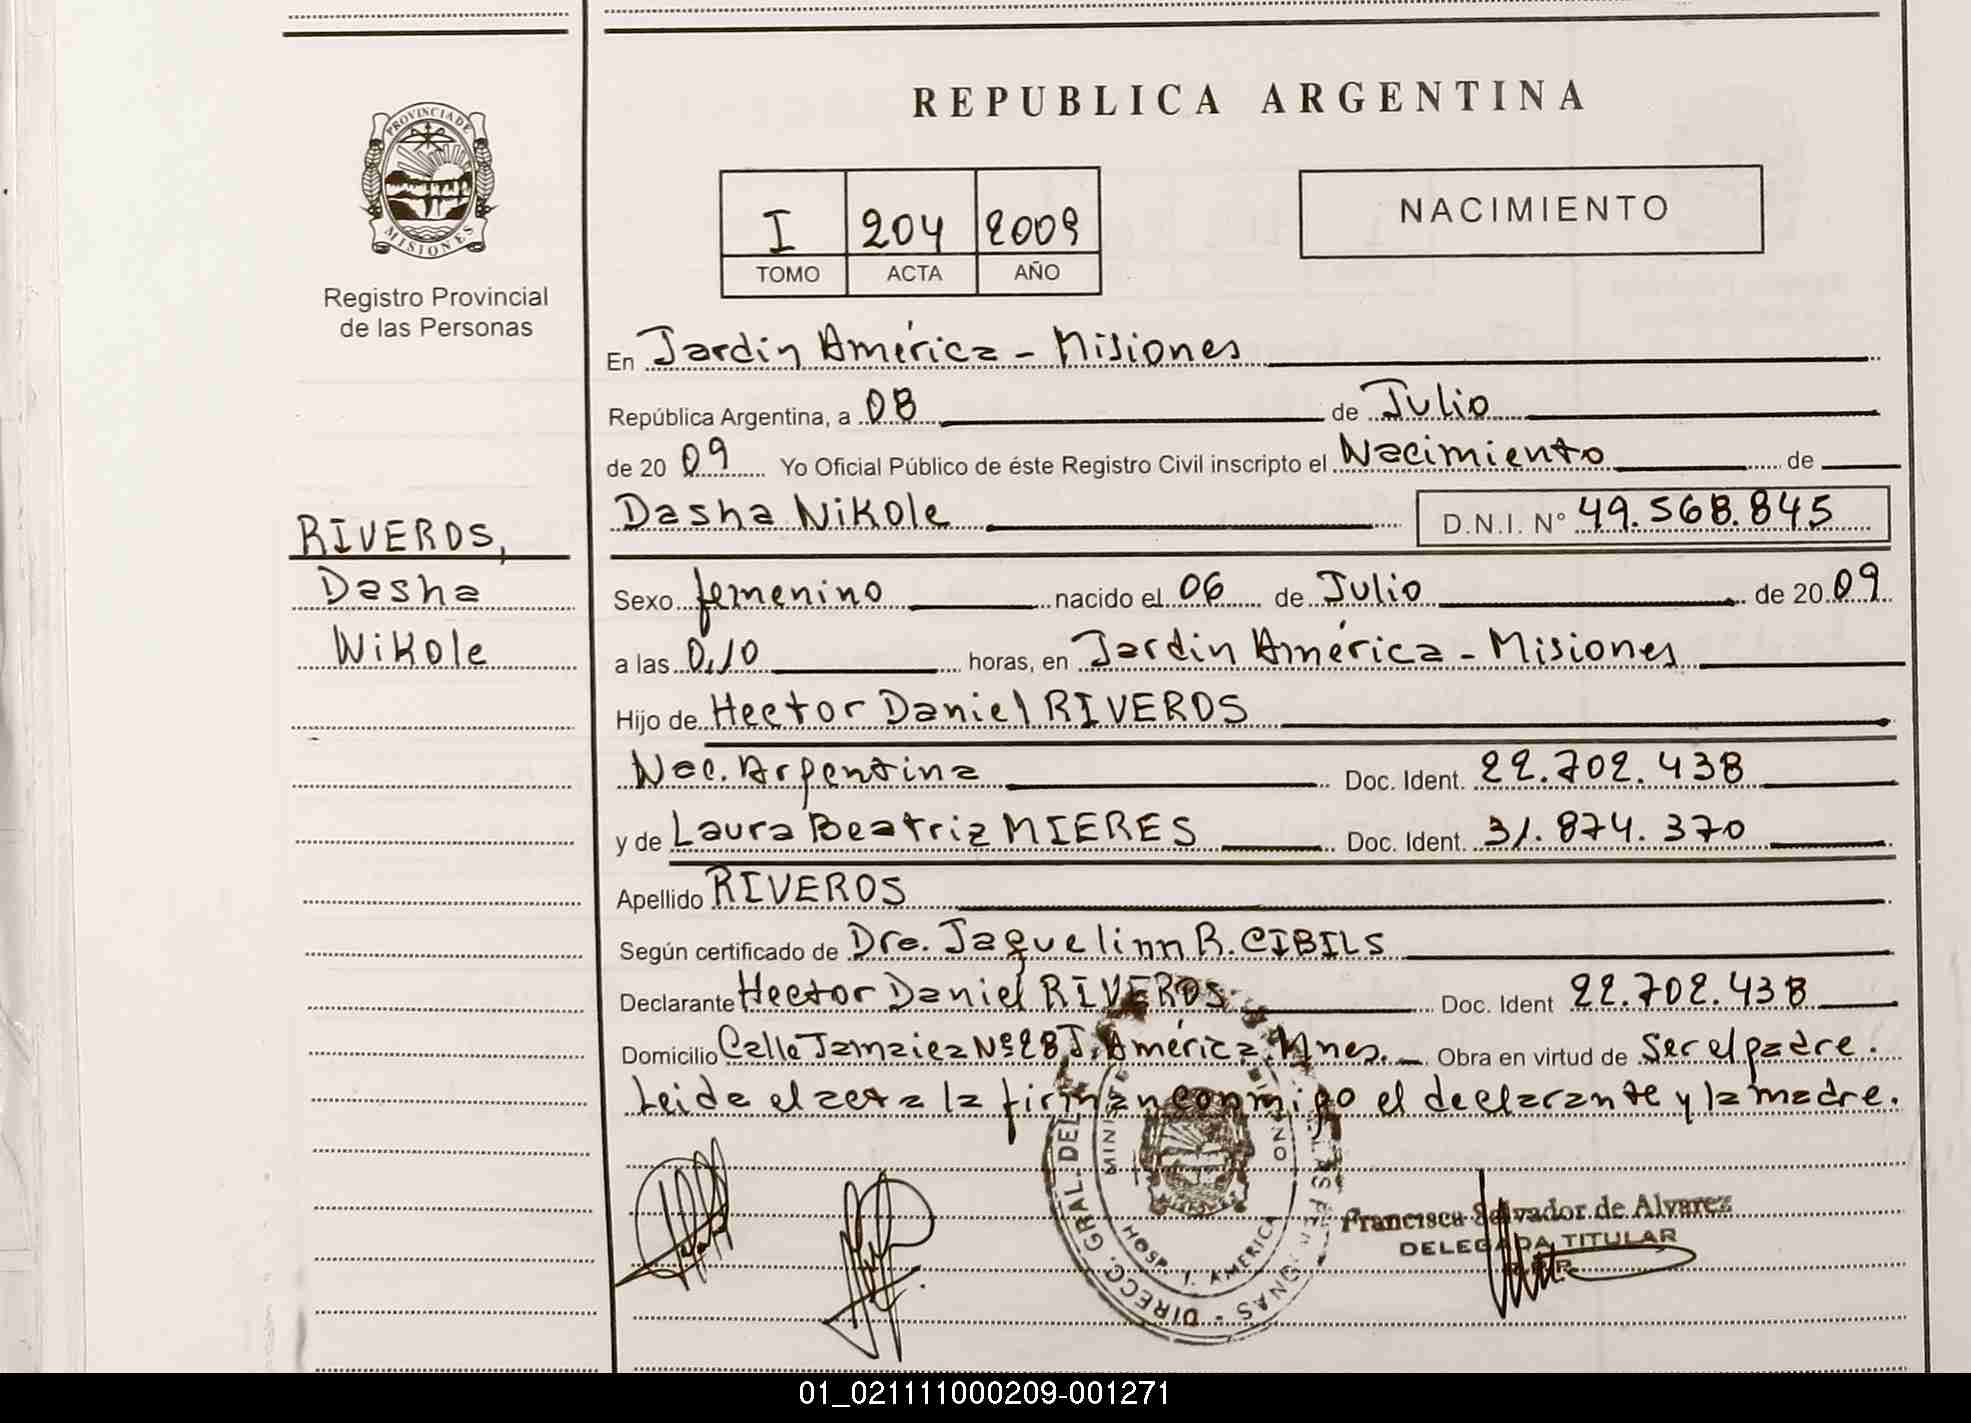 REPUBLICA ARGENTINA
PROVINCIA DE
MISIONES
Registro Provincial
de las Personas
I 204 2009
TOMO ACTA AÑO
NACIMIENTO
En Jardin América - Misiones
República Argentina, a 08 de Julio
de 20 09 Yo Oficial Público de éste Registro Civil inscripto el Nacimiento de
Dasha Nikole D.N.I. N° 49.568.845
RIVEROS,
Dasha
Nikole
Sexo femenino nacido el 06 de Julio de 20 09
a las 0,10 horas, en Jardin América - Misiones
Hijo de Hector Daniel RIVEROS
Nac. Argentina Doc. Ident. 22.702.438
y de Laura Beatriz MIERES Doc. Ident. 31.874.370
Apellido RIVEROS
Según certificado de Dra. Jaquelinn R. CIBILS
Declarante Hector Daniel RIVEROS Doc. Ident 22.702.438
Domicilio Calle Jamaica Nº 28 J. América. Mnes. Obra en virtud de Ser el padre.
Leida el acta la firman conmigo el declarante y la madre.
DIRECC. GRAL. DEL
HOSP. J. AMERICA
Francisca Salvador de Alvarez
DELEGADA TITULAR
01_021111000209-001271